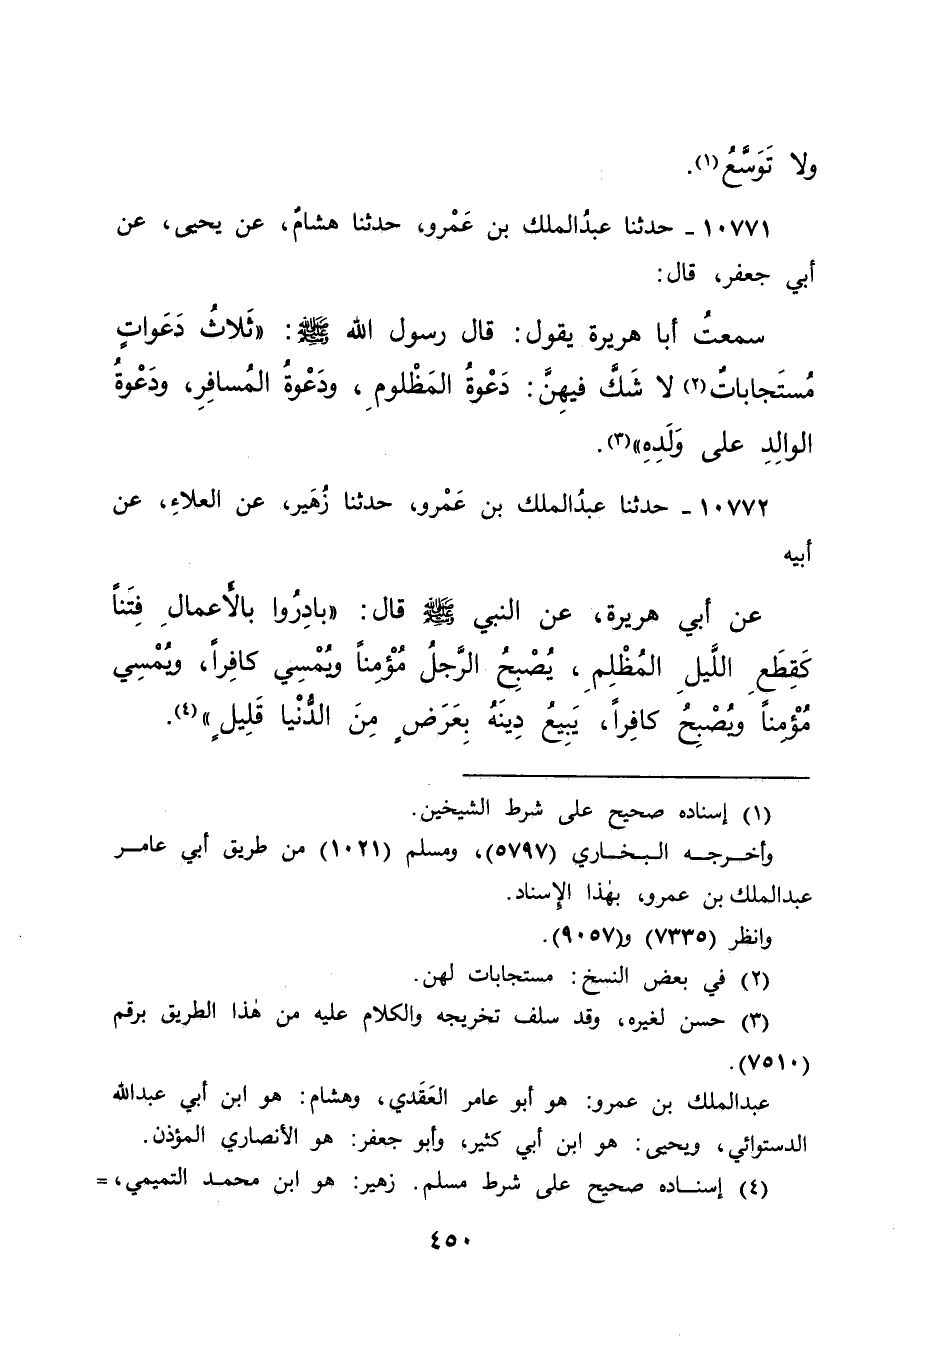 ولا تَوَسَّعُ(١).
١٠٧٧١ ـ حدثنا عبدُالملك بن عَمْرو، حدثنا هشامٌ، عن يحيى، عن
أبي جعفر، قال:
سمعتُ أبا هريرة يقول: قال رسول الله ﷺ: «ثَلاثُ دَعَواتٍ
مُستَجاباتٌ(٢) لا شَكَّ فيهِنَّ: دَعْوةُ المَظْلومِ، ودَعْوةُ المُسافِرِ، ودَعْوةُ
الوالِدِ على وَلَدِهِ»(٣).
١٠٧٧٢ ـ حدثنا عبدُالملك بن عَمْرو، حدثنا زُهَير، عن العلاءِ، عن
أبيه
عن أبي هريرة، عن النبي ﷺ قال: «بادِرُوا بالأَعمالِ فِتَناً
كَقِطَعِ اللَّيلِ المُظْلِمِ، يُصْبِحُ الرَّجلُ مُؤْمِناً ويُمْسِي كافِراً، ويُمْسِي
مُؤْمِناً ويُصْبِحُ كافِراً، يَبِيعُ دِينَهُ بِعَرَضٍ مِنَ الدُّنْيا قَلِيلٍ»(٤).
(١) إسناده صحيح على شرط الشيخين.
وأخـرجـه البـخـاري (٥٧٩٧)، ومسلم (١٠٢١) من طريق أبي عامـر
عبدالملك بن عمرو، بهٰذا الإسناد.
وانظر (٧٣٣٥) و(٩٠٥٧).
(٢) في بعض النسخ: مستجابات لهن.
(٣) حسن لغيره، وقد سلف تخريجه والكلام عليه من هٰذا الطريق برقم
(٧٥١٠).
عبدالملك بن عمرو: هو أبو عامر العَقَدي، وهشام: هو ابن أبي عبدالله
الدستوائي، ويحيى: هو ابن أبي كثير، وأبو جعفر: هو الأنصاري المؤذن.
(٤) إسنـاده صحيح على شرط مسلم. زهير: هو ابن محمـد التميمي، =
٤٥٠